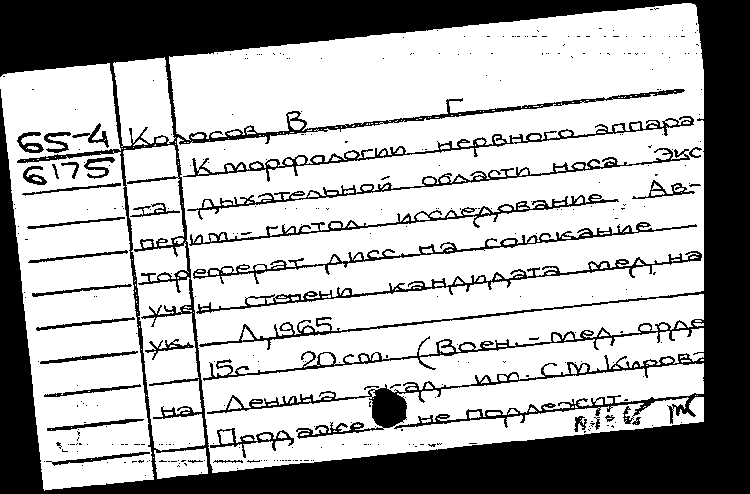 65-4 Колосов, В Г
6175 К морфологии нервного аппара-
та дыхательной области носа. Экс
перим.-гистол. исследование. Ав-
тореферат дисс. на соискание
учен. степени кандидата мед. на
ук. Л., 1965.
15с. 20 cm. (Воен.-мед. орде
на Ленина акад. им. С.М. Кирова
Продаже не подлежит.